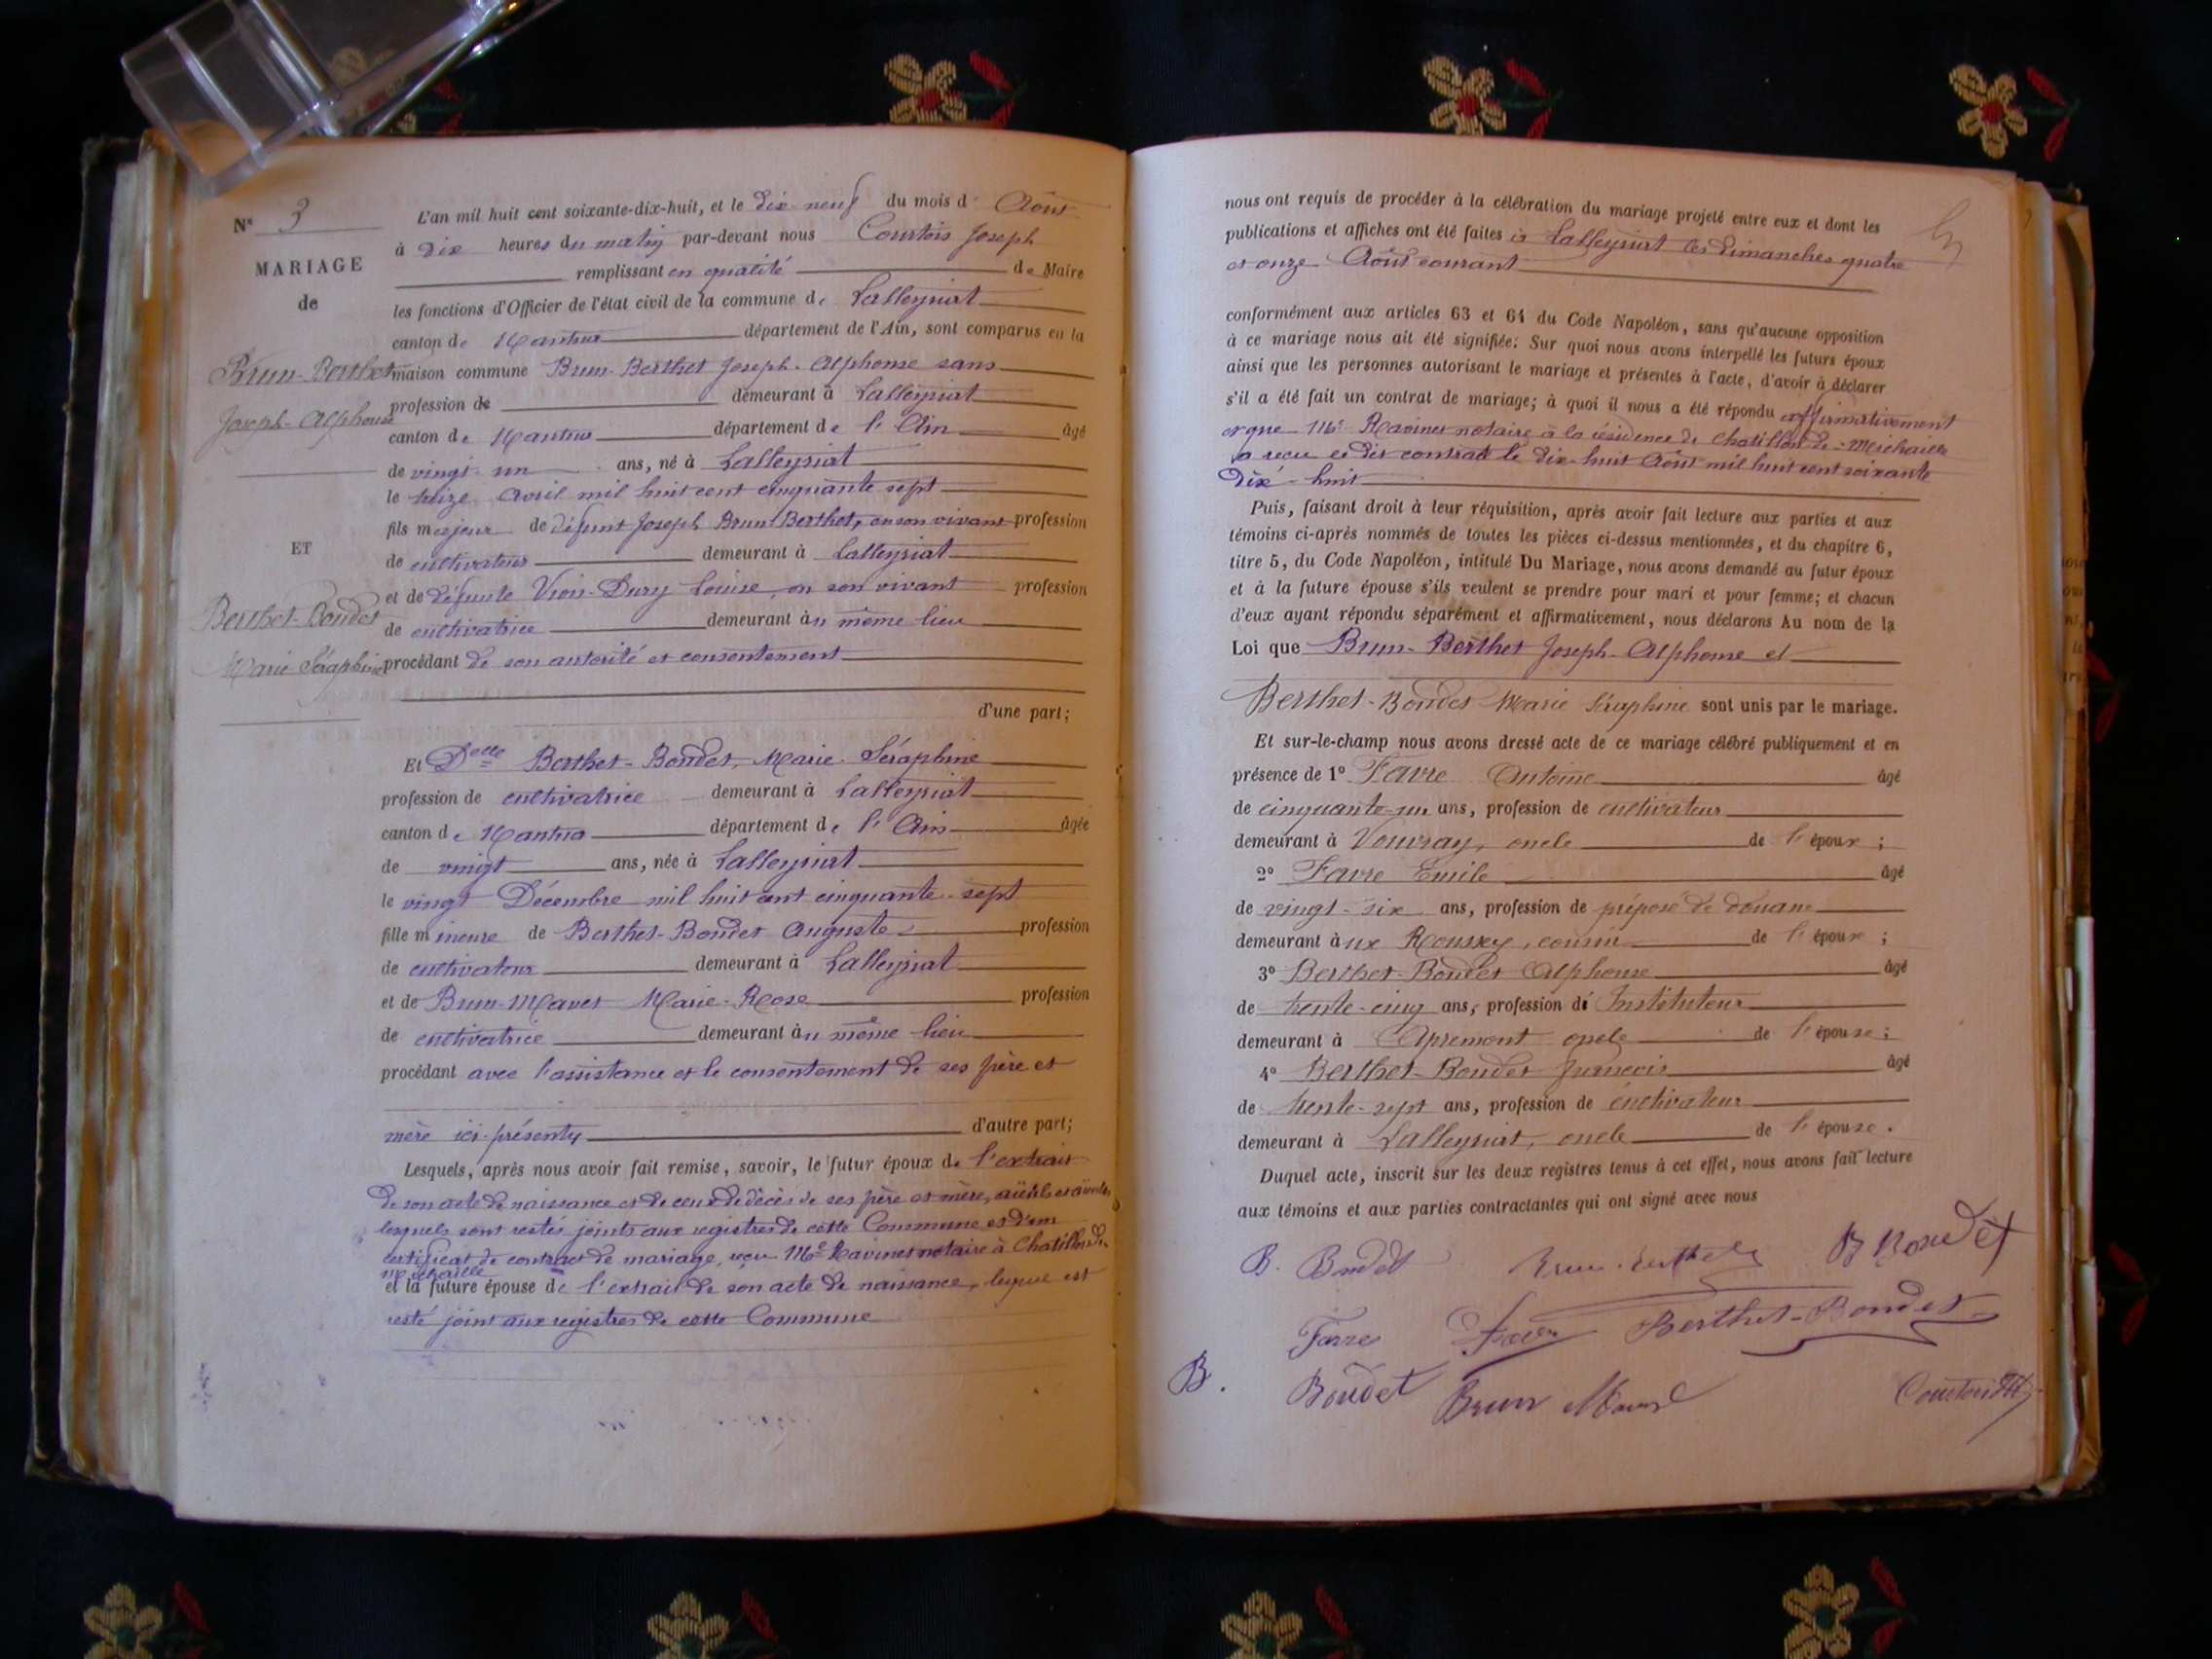 N° 3
MARIAGE
de
Brun-Berthet
Joseph-Alphonse
ET
Berthet-Bondet
Marie Séraphine
L'an mil huit cent soixante-dix-huit, et le dix-neuf du mois d' Août
à dix heures du matin par-devant nous Courtois Joseph
remplissant en qualité de Maire
les fonctions d'Officier de l'état civil de la commune de Lalleyriat
canton de Nantua département de l'Ain, sont comparus en la
maison commune Brun-Berthet Joseph-Alphonse sans
profession de demeurant à Lalleyriat
canton de Nantua département de l'Ain âgé
de vingt-un ans, né à Lalleyriat
le treize Avril mil huit cent cinquante sept
fils majeur de défunt Joseph Brun-Berthet, en son vivant profession
de cultivateur demeurant à Lalleyriat
et de défunte Louise, en son vivant profession
de cultivatrice demeurant àu même lieu
procédant de son autorité et consentement
d'une part;
Et Delle Berthet-Bondet, Marie-Séraphine
profession de cultivatrice demeurant à Lalleyriat
canton de Nantua département de l'Ain âgée
de vingt ans, née à Lalleyriat
le vingt Décembre mil huit cent cinquante-sept
fille mineure de Berthet-Bondet Auguste profession
de cultivateur demeurant à Lalleyriat
et de Brun-Mavet Marie-Rose profession
de cultivatrice demeurant àu même lieu
procédant avec l'assistance et le consentement de ses père et
mère ici-présents d'autre part;
Lesquels, après nous avoir fait remise, savoir, le futur époux de l'extrait
de son acte de naissance et de ceux de décès de ses père et mère,
lesquels sont restés joints aux registres de cette Commune et d'un
certificat de contract de mariage, reçu Me Ravinet notaire à Chatillon de
michaille
et la future épouse de l'extrait de son acte de naissance, lequel est
resté joint aux registres de cette Commune
nous ont requis de procéder à la célébration du mariage projeté entre eux et dont les
publications et affiches ont été faites à Lalleyriat les dimanches quatre
et onze Août courant
conformément aux articles 63 et 64 du Code Napoléon, sans qu'aucune opposition
à ce mariage nous ait été signifiée: Sur quoi nous avons interpellé les futurs époux
ainsi que les personnes autorisant le mariage et présentes à l'acte, d'avoir à déclarer
s'il a été fait un contrat de mariage; à quoi il nous a été répondu affirmativement
et que Me Ravinet notaire à la résidence de Chatillon-de-Michaille
a reçu le dit contrat le dix-huit Août mil huit cent soixante
dix-huit
Puis, faisant droit à leur réquisition, après avoir fait lecture aux parties et aux
témoins ci-après nommés de toutes les pièces ci-dessus mentionnées, et du chapitre 6,
titre 5, du Code Napoléon, intitulé Du Mariage, nous avons demandé au futur époux
et à la future épouse s'ils veulent se prendre pour mari et pour femme; et chacun
d'eux ayant répondu séparément et affirmativement, nous déclarons Au nom de la
Loi que Brun-Berthet Joseph-Alphonse et
Berthet-Bondet Marie Séraphine sont unis par le mariage.
Et sur-le-champ nous avons dressé acte de ce mariage célébré publiquement et en
présence de 1° Favre Antoine âgé
de cinquante-un ans, profession de cultivateur
demeurant à Vouvray, oncle de l'époux;
2° Favre Emile âgé
de vingt-six ans, profession de préposé de douane
demeurant àux Rousses, cousin de l'époux;
3° Berthet-Bondet Alphonse âgé
de trente-cinq ans, profession d' Instituteur
demeurant à Apremont oncle de l'épouse;
4° Berthet-Bondet François âgé
de trente-sept ans, profession de cultivateur
demeurant à Lalleyriat, oncle de l'épouse.
Duquel acte, inscrit sur les deux registres tenus à cet effet, nous avons fait lecture
aux témoins et aux parties contractantes qui ont signé avec nous
B. Bondet Brun-Berthet B Bondet
Favre Favre Berthet-Bondet
B. Bondet Brun Mavet Courtois